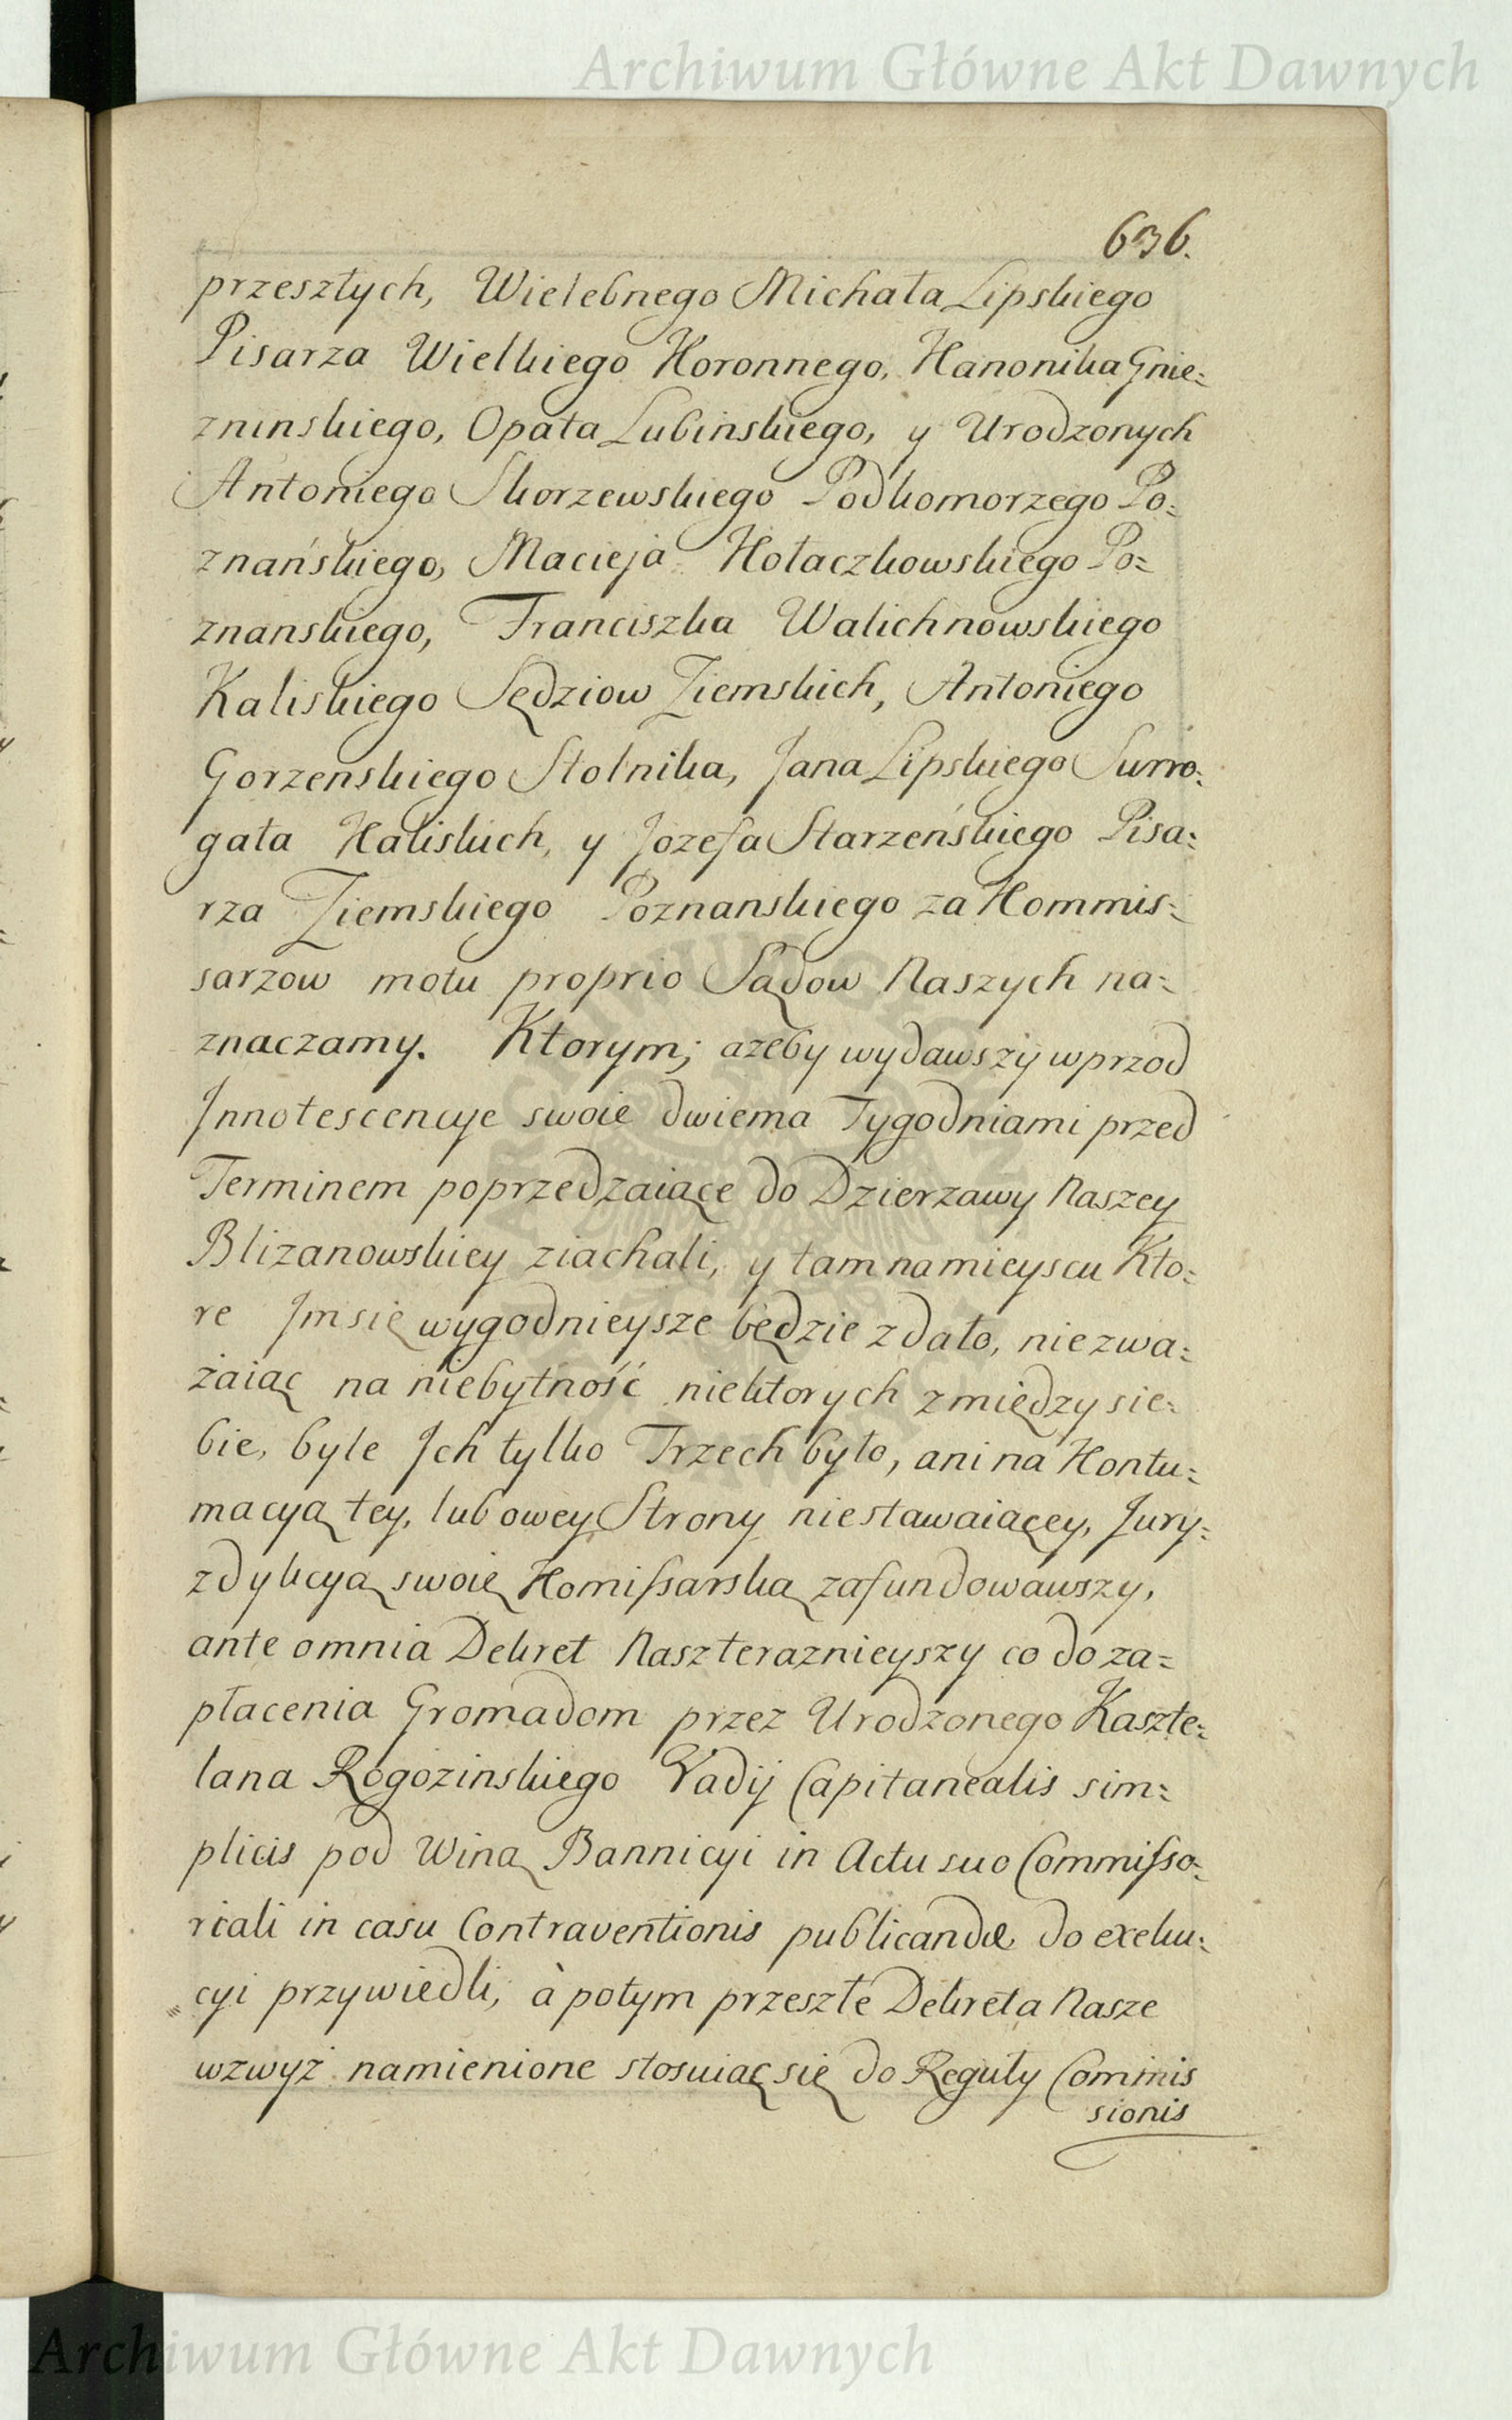 Archiwum Główne Akt Dawnych
636.
przeszłych, Wielebnego Michała Lipskiego
Pisarza Wielkiego Koronnego, Kanonika Gnie=
zninskiego, Opata Lubinskiego, y Urodzonych
Antoniego Skorzewskiego Podkomorzego Po=
znańskiego, Macieja Kołaczkowskiego Po=
znanskiego, Franciszka Walichnowskiego
Kaliskiego Sędziow Ziemskich, Antoniego
Gorzenskiego Stolnika, Jana Lipskiego Surro=
gata Kaliskich, y Jozefa Starzeńskiego Pisa=
rza Ziemskiego Poznanskiego za Kommis=
sarzow motu proprio Sądow Naszych na=
znaczamy. Ktorym; azeby wydawszy wprzod
Innotescencye swoie dwiema Tygodniami przed
Terminem poprzedzaiące do Dzierzawy Naszey
Blizanowskiey ziachali, y tam na mieyscu Kto=
re Im się wygodnieysze będzie zdało, nie zwa=
żaiąc na niebytność niektorych z między sie=
bie, byle Ich tylko Trzech było, ani na Kontu=
macyą tey, lub owey Strony niestawaiącey, Jury=
zdykcyą swoię Komissarską zafundowawszy,
ante omnia Dekret Nasz teraznieyszy co do za=
płacenia Gromadom przez Urodzonego Kaszte=
lana Rogozinskiego Vadij Capitanealis sim=
plicis pod Winą Bannicyi in Actu suo Commisso=
riali in casu Contraventionis publicandæ do exeku=
cyi przywiedli, à potym przeszłe Dekreta Nasze
wzwyż namienione stosuiąc się do Reguły Commis
sionis
Archiwum Główne Akt Dawnych